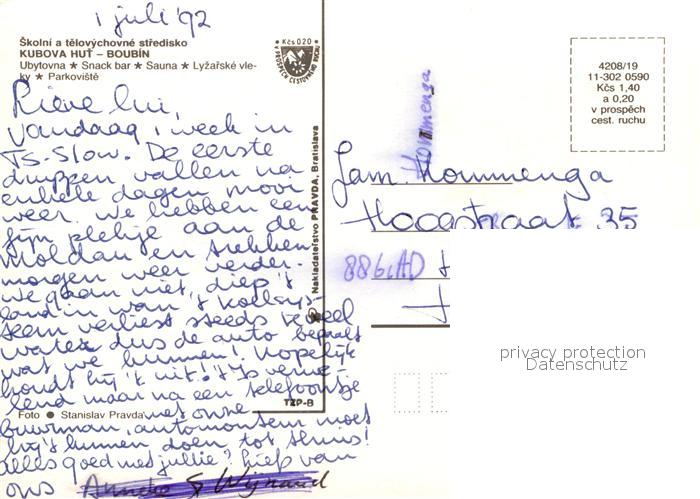 1 juli '92
Školní a tělovýchovné středisko
KUBOVA HUŤ – BOUBÍN
Ubytovna ★ Snack bar ★ Sauna ★ Lyžařské vle-
ky ★ Parkoviště
Kčs 0.20
V PROSPĚCH CESTOVNÍHO RUCHU
4208/19
11-302 0590
Kčs 1,40
a 0,20
v prospěch
cest. ruchu
Lieve lui,
Vandaag 1 week in
Ts-Slow. De eerste
druppen vallen na
enkele dagen mooi
weer. We hebben een
fijn plekje aan de
Moldau en trekken
morgen weer verder.
We gaan niet diep 't
land in want 't koelsys-
teem verliest steeds teveel
water dus de auto bepaalt
wat we kunnen! Hopelijk
houdt hij 't uit! 't Is verve-
lend maar na een telefoontje
met onze
buurman, automonteur moet
hij 't kunnen doen tot thuis!
Alles goed met jullie? Liefs van
ons Anneke & Wijnand
Nakladatelství PRAVDA, Bratislava
TZP-B
Foto ● Stanislav Pravda
Hommenga
Fam. Hommenga
Hoogstraat 35
privacy protection
Datenschutz